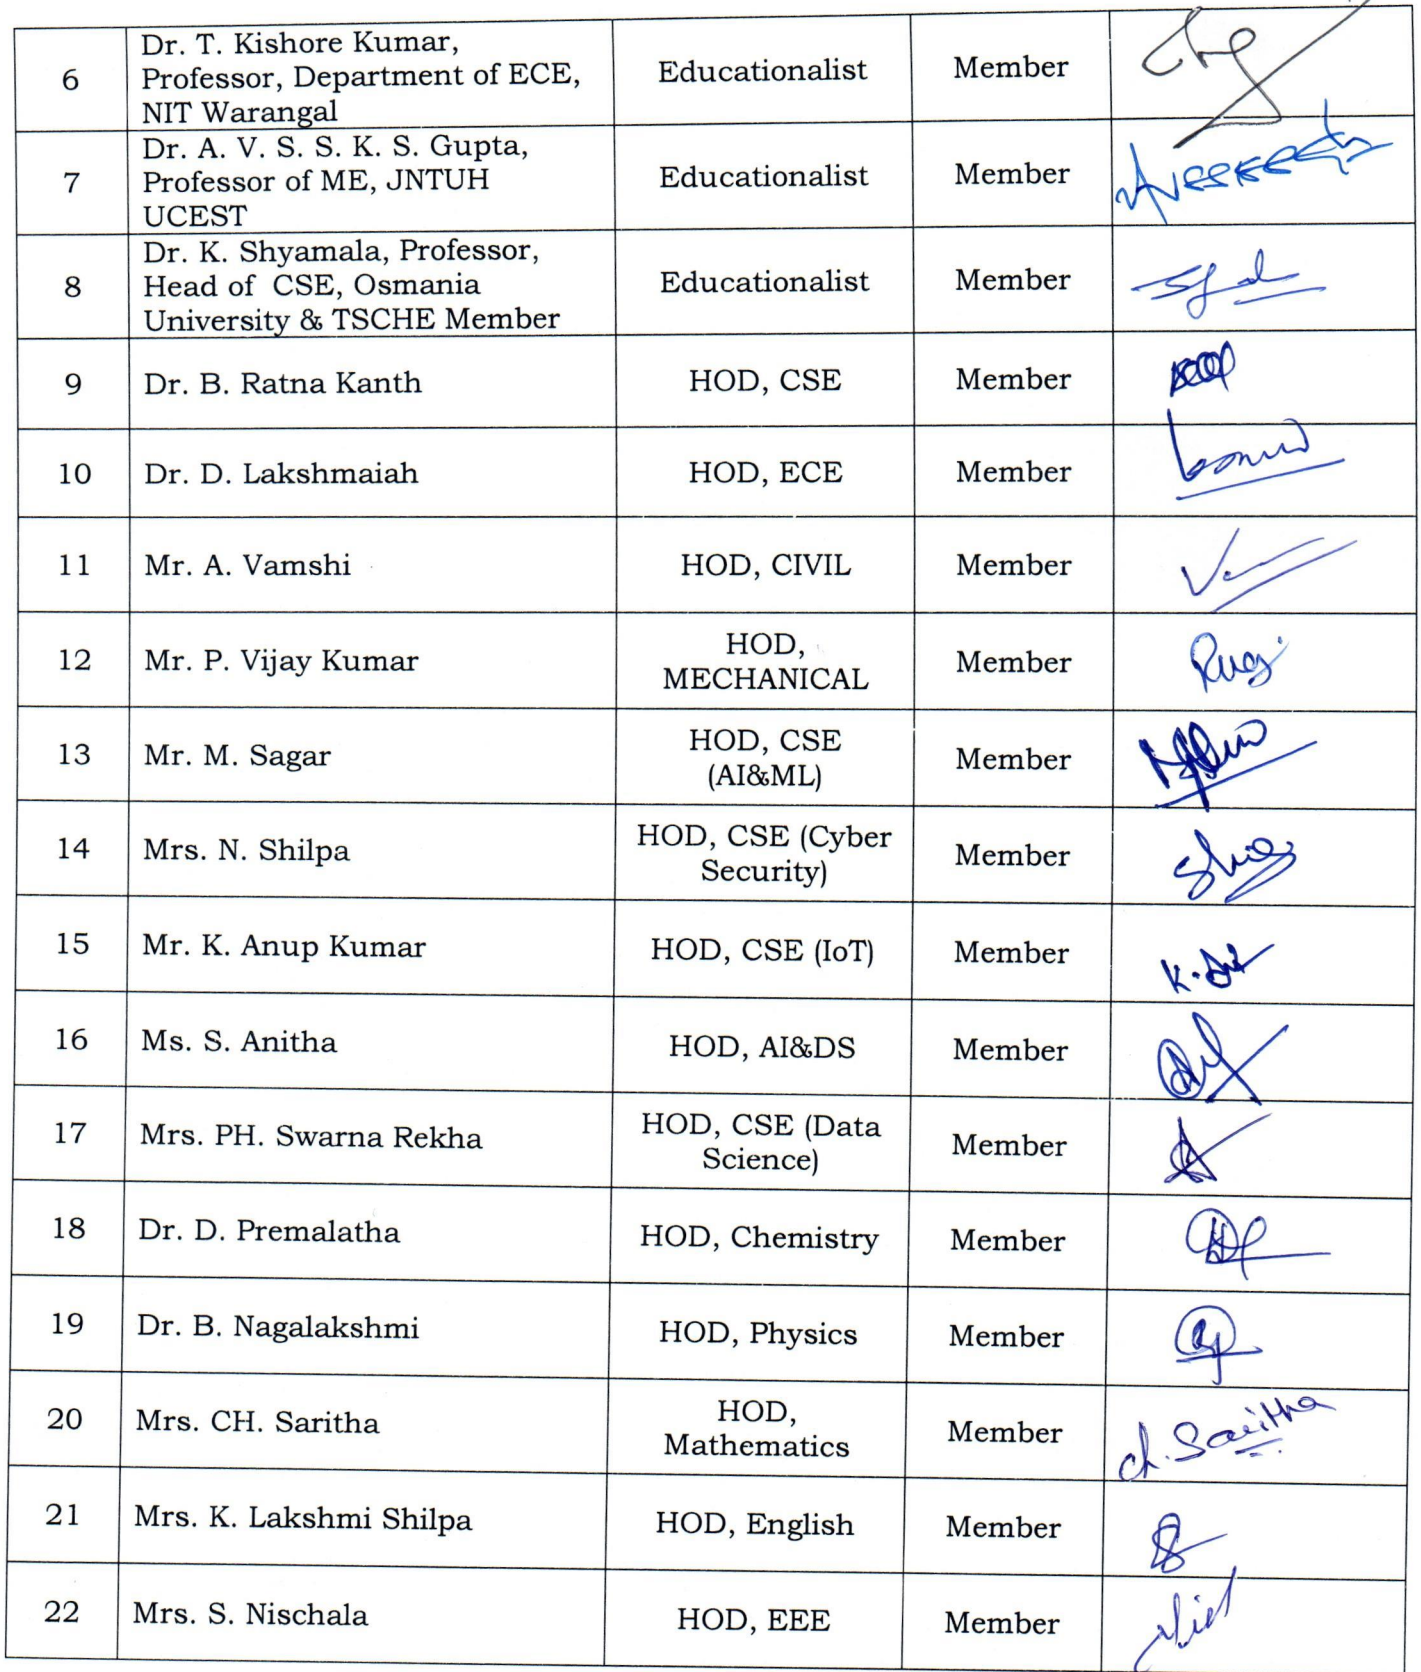 6
Dr. T. Kishore Kumar,
Professor, Department of ECE,
NIT Warangal
Educationalist
Member
7
Dr. A. V. S. S. K. S. Gupta,
Professor of ME, JNTUH
UCEST
Educationalist
Member
8
Dr. K. Shyamala, Professor,
Head of CSE, Osmania
University & TSCHE Member
Educationalist
Member
9
Dr. B. Ratna Kanth
HOD, CSE
Member
10
Dr. D. Lakshmaiah
HOD, ECE
Member
11
Mr. A. Vamshi
HOD, CIVIL
Member
12
Mr. P. Vijay Kumar
HOD,
MECHANICAL
Member
13
Mr. M. Sagar
HOD, CSE
(AI&ML)
Member
14
Mrs. N. Shilpa
HOD, CSE (Cyber
Security)
Member
15
Mr. K. Anup Kumar
HOD, CSE (IoT)
Member
16
Ms. S. Anitha
HOD, AI&DS
Member
17
Mrs. PH. Swarna Rekha
HOD, CSE (Data
Science)
Member
18
Dr. D. Premalatha
HOD, Chemistry
Member
19
Dr. B. Nagalakshmi
HOD, Physics
Member
20
Mrs. CH. Saritha
HOD,
Mathematics
Member
ch. Saritha
21
Mrs. K. Lakshmi Shilpa
HOD, English
Member
22
Mrs. S. Nischala
HOD, EEE
Member